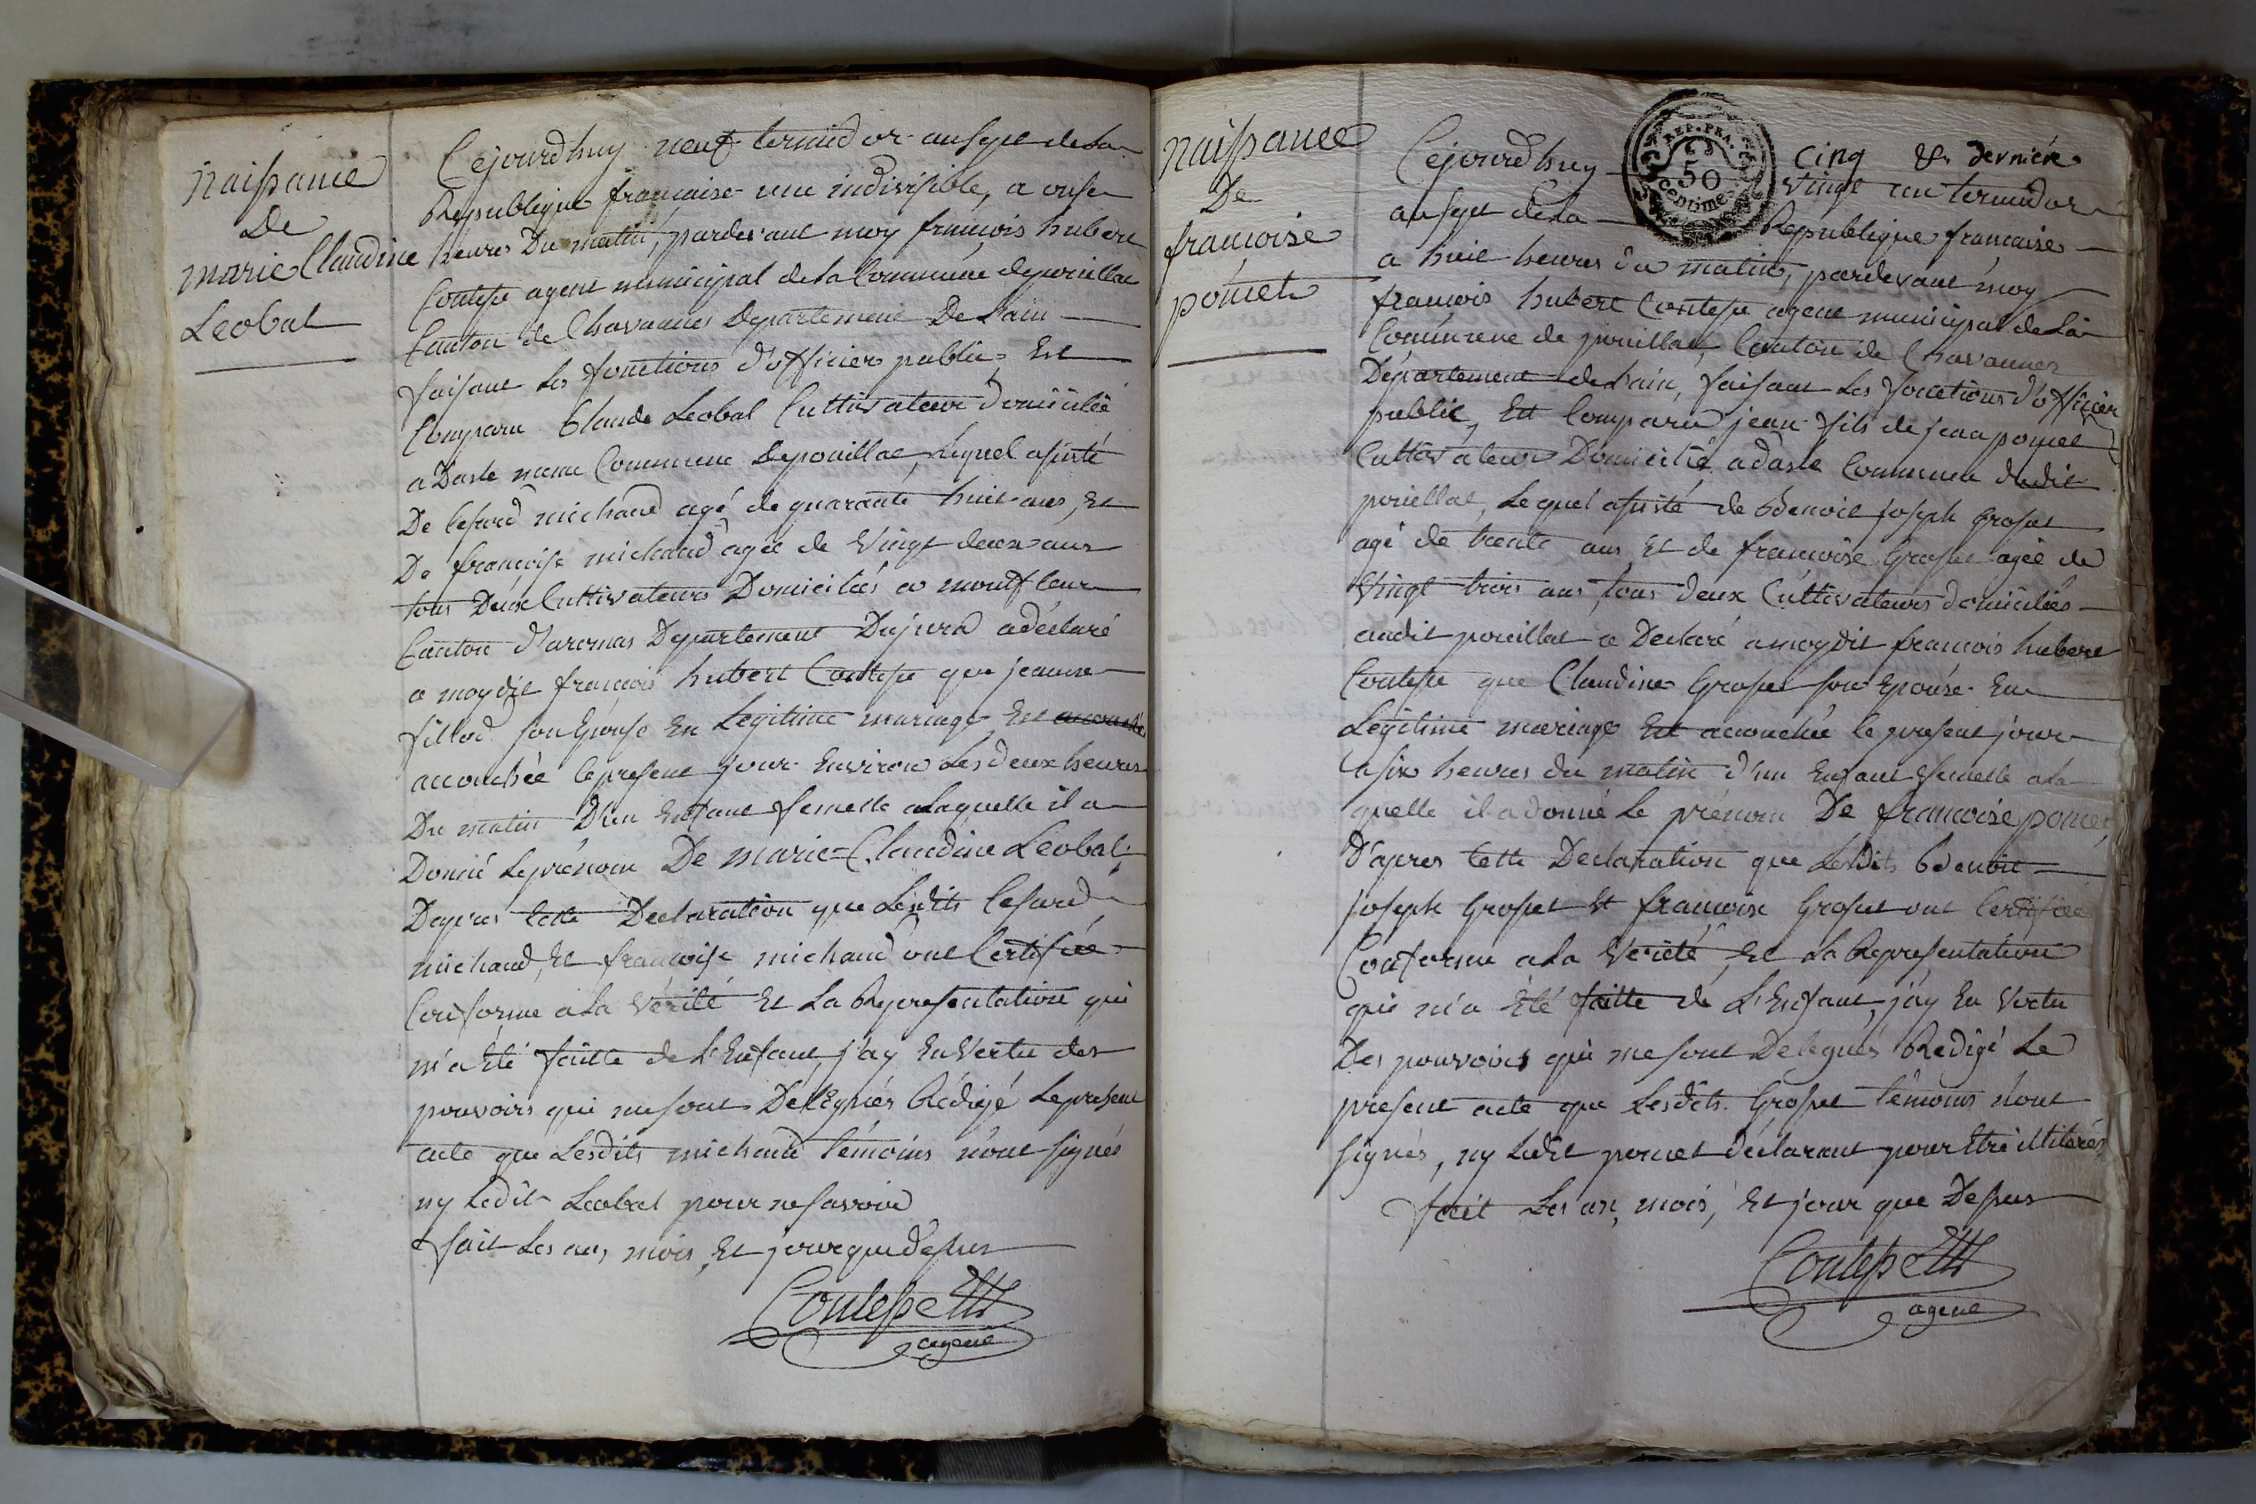 Naissance
De
marie Claudine
Leobal
Cejourdhuy neuf termidor an sept de la
Republique francaise une indivisible, a onse
heures Du matin, pardevant moy francois hubert
Contesse agent municipal de la Commune de pouillat
Canton de Chavannes Departement De Lain
faisant les fonctions d'officier public, Est
Comparu Claude Leobal Cultivateur domicilié
a Daste meme Commune de pouillat, lequel assisté
De Cesard michaud agé de quarante huit ans, Et
De françoise michaud agée de Vingt deux ans
tous Deux Cultivateurs Domiciliés a montfleur
Canton d'aromas Departement Dujura a déclaré
a moydit françois hubert Contesse que jeanne
fillod son Epouse En Legitime mariage Est
accouchée le present jour Environ Les deux heures
Du matin D'un Enfant femelle a laquelle il a
Donné le prénom De marie=Claudine Leobal
Dapres cette Declaration que Lesdits Cesard
michaud, Et francoise michaud ont Certifiée
Conforme a la Vérité Et La Representation qui
m'a Eté faitte de L'Enfant, j'ay En Vertu des
pouvoirs qui me sont Delegués Rédigé le present
acte que Lesdits michaud témoins n'ont signés
ny Ledit Leobal pour ne savoir
fait Les an, mois, Et jour que Dessus
Contesse
agent
Naissance
De
francoise
poncet
REP. FRA.
50
centimes
cinq & dernière
Cejourdhuy vingt un termidor
an sept de la Republique francaise
a huit heures du matin, pardevant moy
francois hubert Contesse agent municipal de La
Commune de pouillat, Canton de Chavannes
Département de Lain, faisant Les fonctions d'officier
public, Est Comparu jean fils de jean poncet
Cultivateur Domicilié a daste Commune dudit
pouillat, Lequel assisté de Benoit joseph Grosset
agé de trente ans Et de francoise Grosset agée de
Vingt trois ans, tous deux Cultivateurs domiciliés
audit pouillat a Declaré a moydit francois hubert
Contesse que Claudine Grosset son Epouse En
Legitime mariage Est accouchée le present jour
a six heures du matin d'un Enfant femelle a la
quelle il a donné Le prénom De francoise poncet,
D'apres Cette Declaration que Lesdits Benoit
joseph Grosset Et francoise Grosset ont Certifiée
Conforme a la Verité Et La Representation
qui m'a Eté faitte de L'Enfant, j'ay En Vertu
Des pouvoirs qui me sont Delegués Redigé Le
present acte que Lesdits Grosset témoins n'ont
signés, ny Ledit poncet déclarant pour Etre illiterés
fait Les an, mois, Et jour que Dessus
Contesse
agent